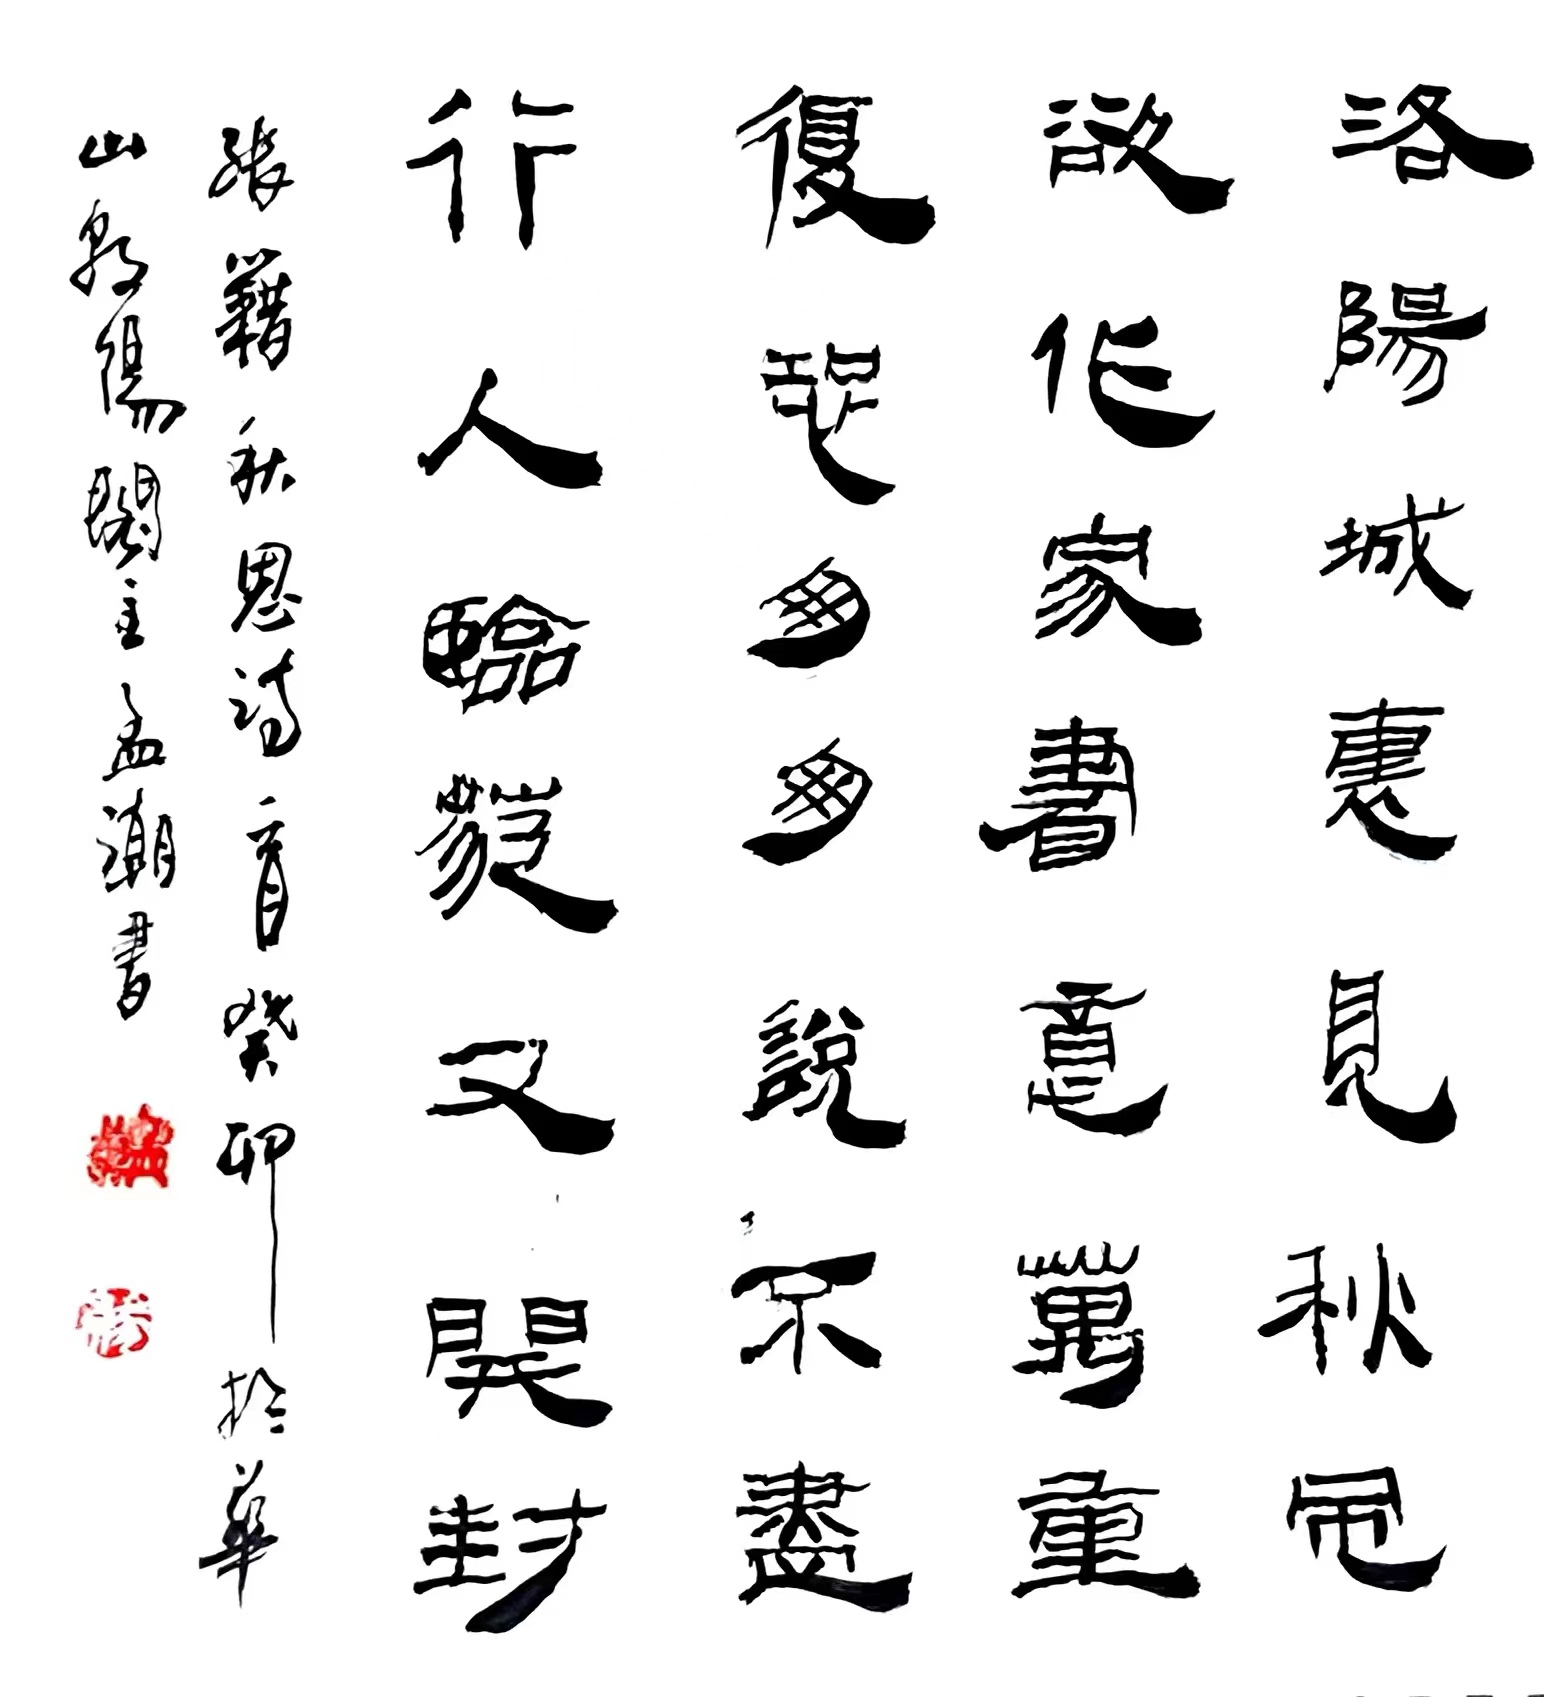 洛陽城裏見秋風
欲作家書意萬重
復恐匆匆說不盡
行人臨發又開封
張籍秋思詩一首癸卯於華
山朝陽閣主孟潮書